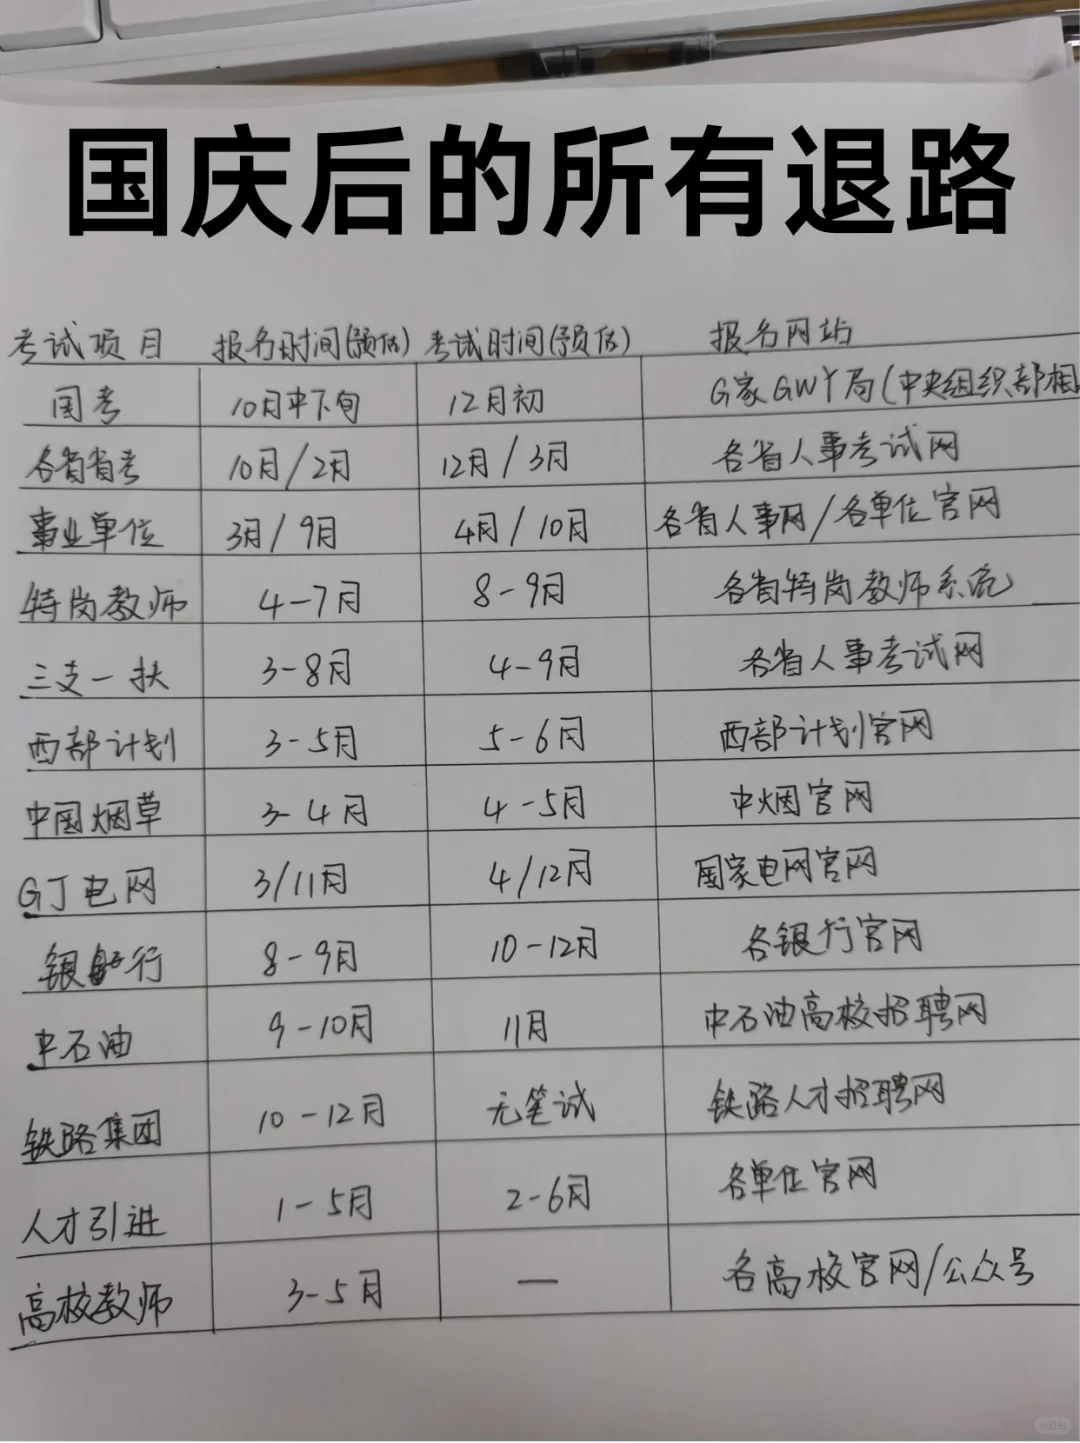 国庆后的所有退路
考试项目 报名时间(预估) 考试时间(预估) 报名网站
国考 10月中下旬 12月初 G家GWY局(中央组织部相
各省省考 10月/2月 12月/3月 各省人事考试网
事业单位 3月/9月 4月/10月 各省人事网/各单位官网
特岗教师 4-7月 8-9月 各省特岗教师系统
三支一扶 3-8月 4-9月 各省人事考试网
西部计划 3-5月 5-6月 西部计划官网
中国烟草 3-4月 4-5月 中烟官网
GJ电网 3/11月 4/12月 国家电网官网
银行 8-9月 10-12月 各银行官网
中石油 9-10月 11月 中石油高校招聘网
铁路集团 10-12月 无笔试 铁路人才招聘网
人才引进 1-5月 2-6月 各单位官网
高校教师 3-5月 — 各高校官网/公众号
小红书